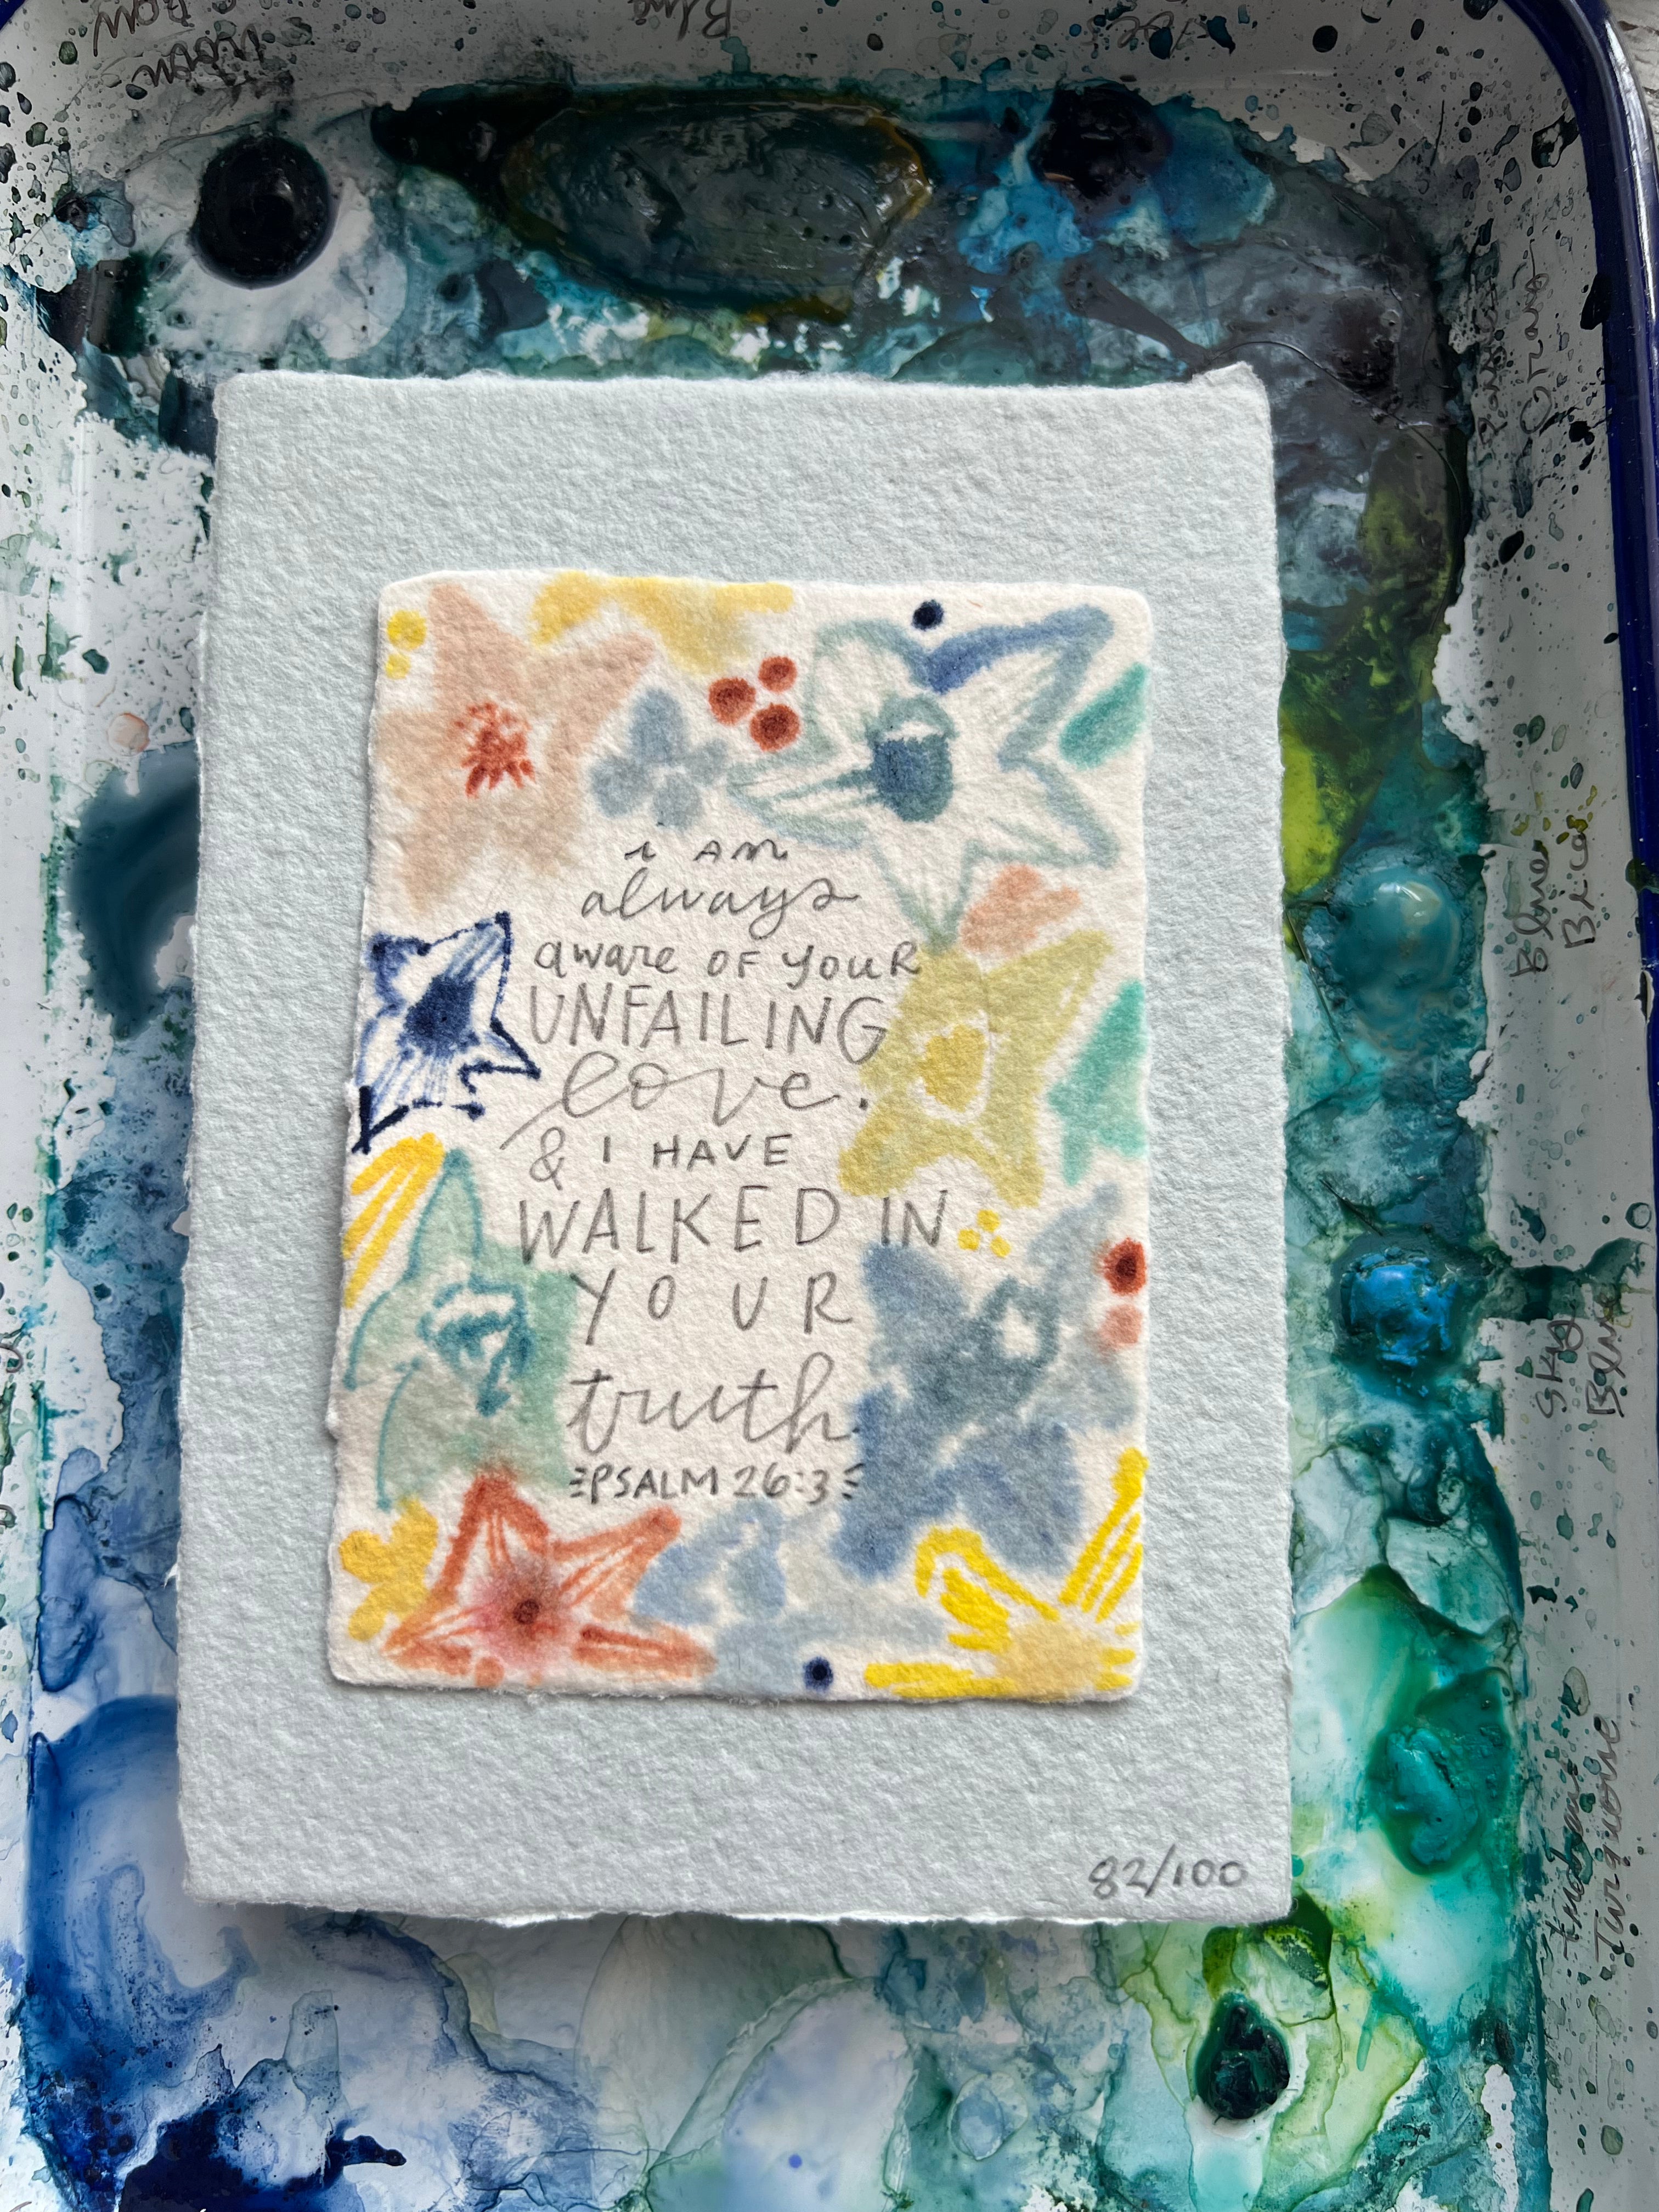 i am
always
aware of your
UNFAILING
love.
& I HAVE
WALKED IN
YOUR
truth.
PSALM 26:3
82/100
Blue
Sky
Blue
Turquoise